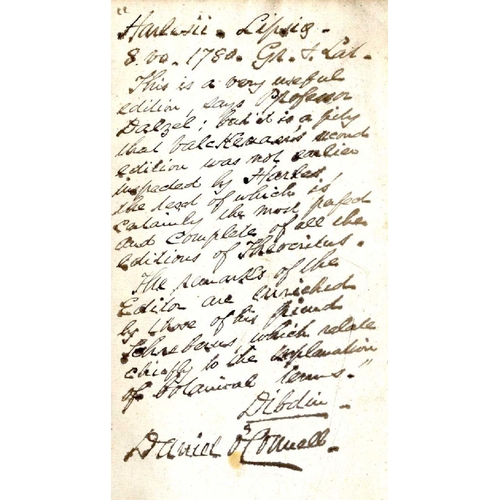 "
Harlesii - Lipsiæ -
8. vo. 1780. Gr. & Lat. -
This is a very useful
edition, says Professor
Dalzel; but it is a pity
that Valckenaer's second
edition was not earlier
inspected by Harles,
the text of which is,
certainly the most perfect
and complete of all the
editions of Theocritus.
The remarks of the
Editor are enriched
by those of his friend
Schreberus, which relate
chiefly to the explanation
of botanical terms."
Dibdin -
Daniel O'Connell -